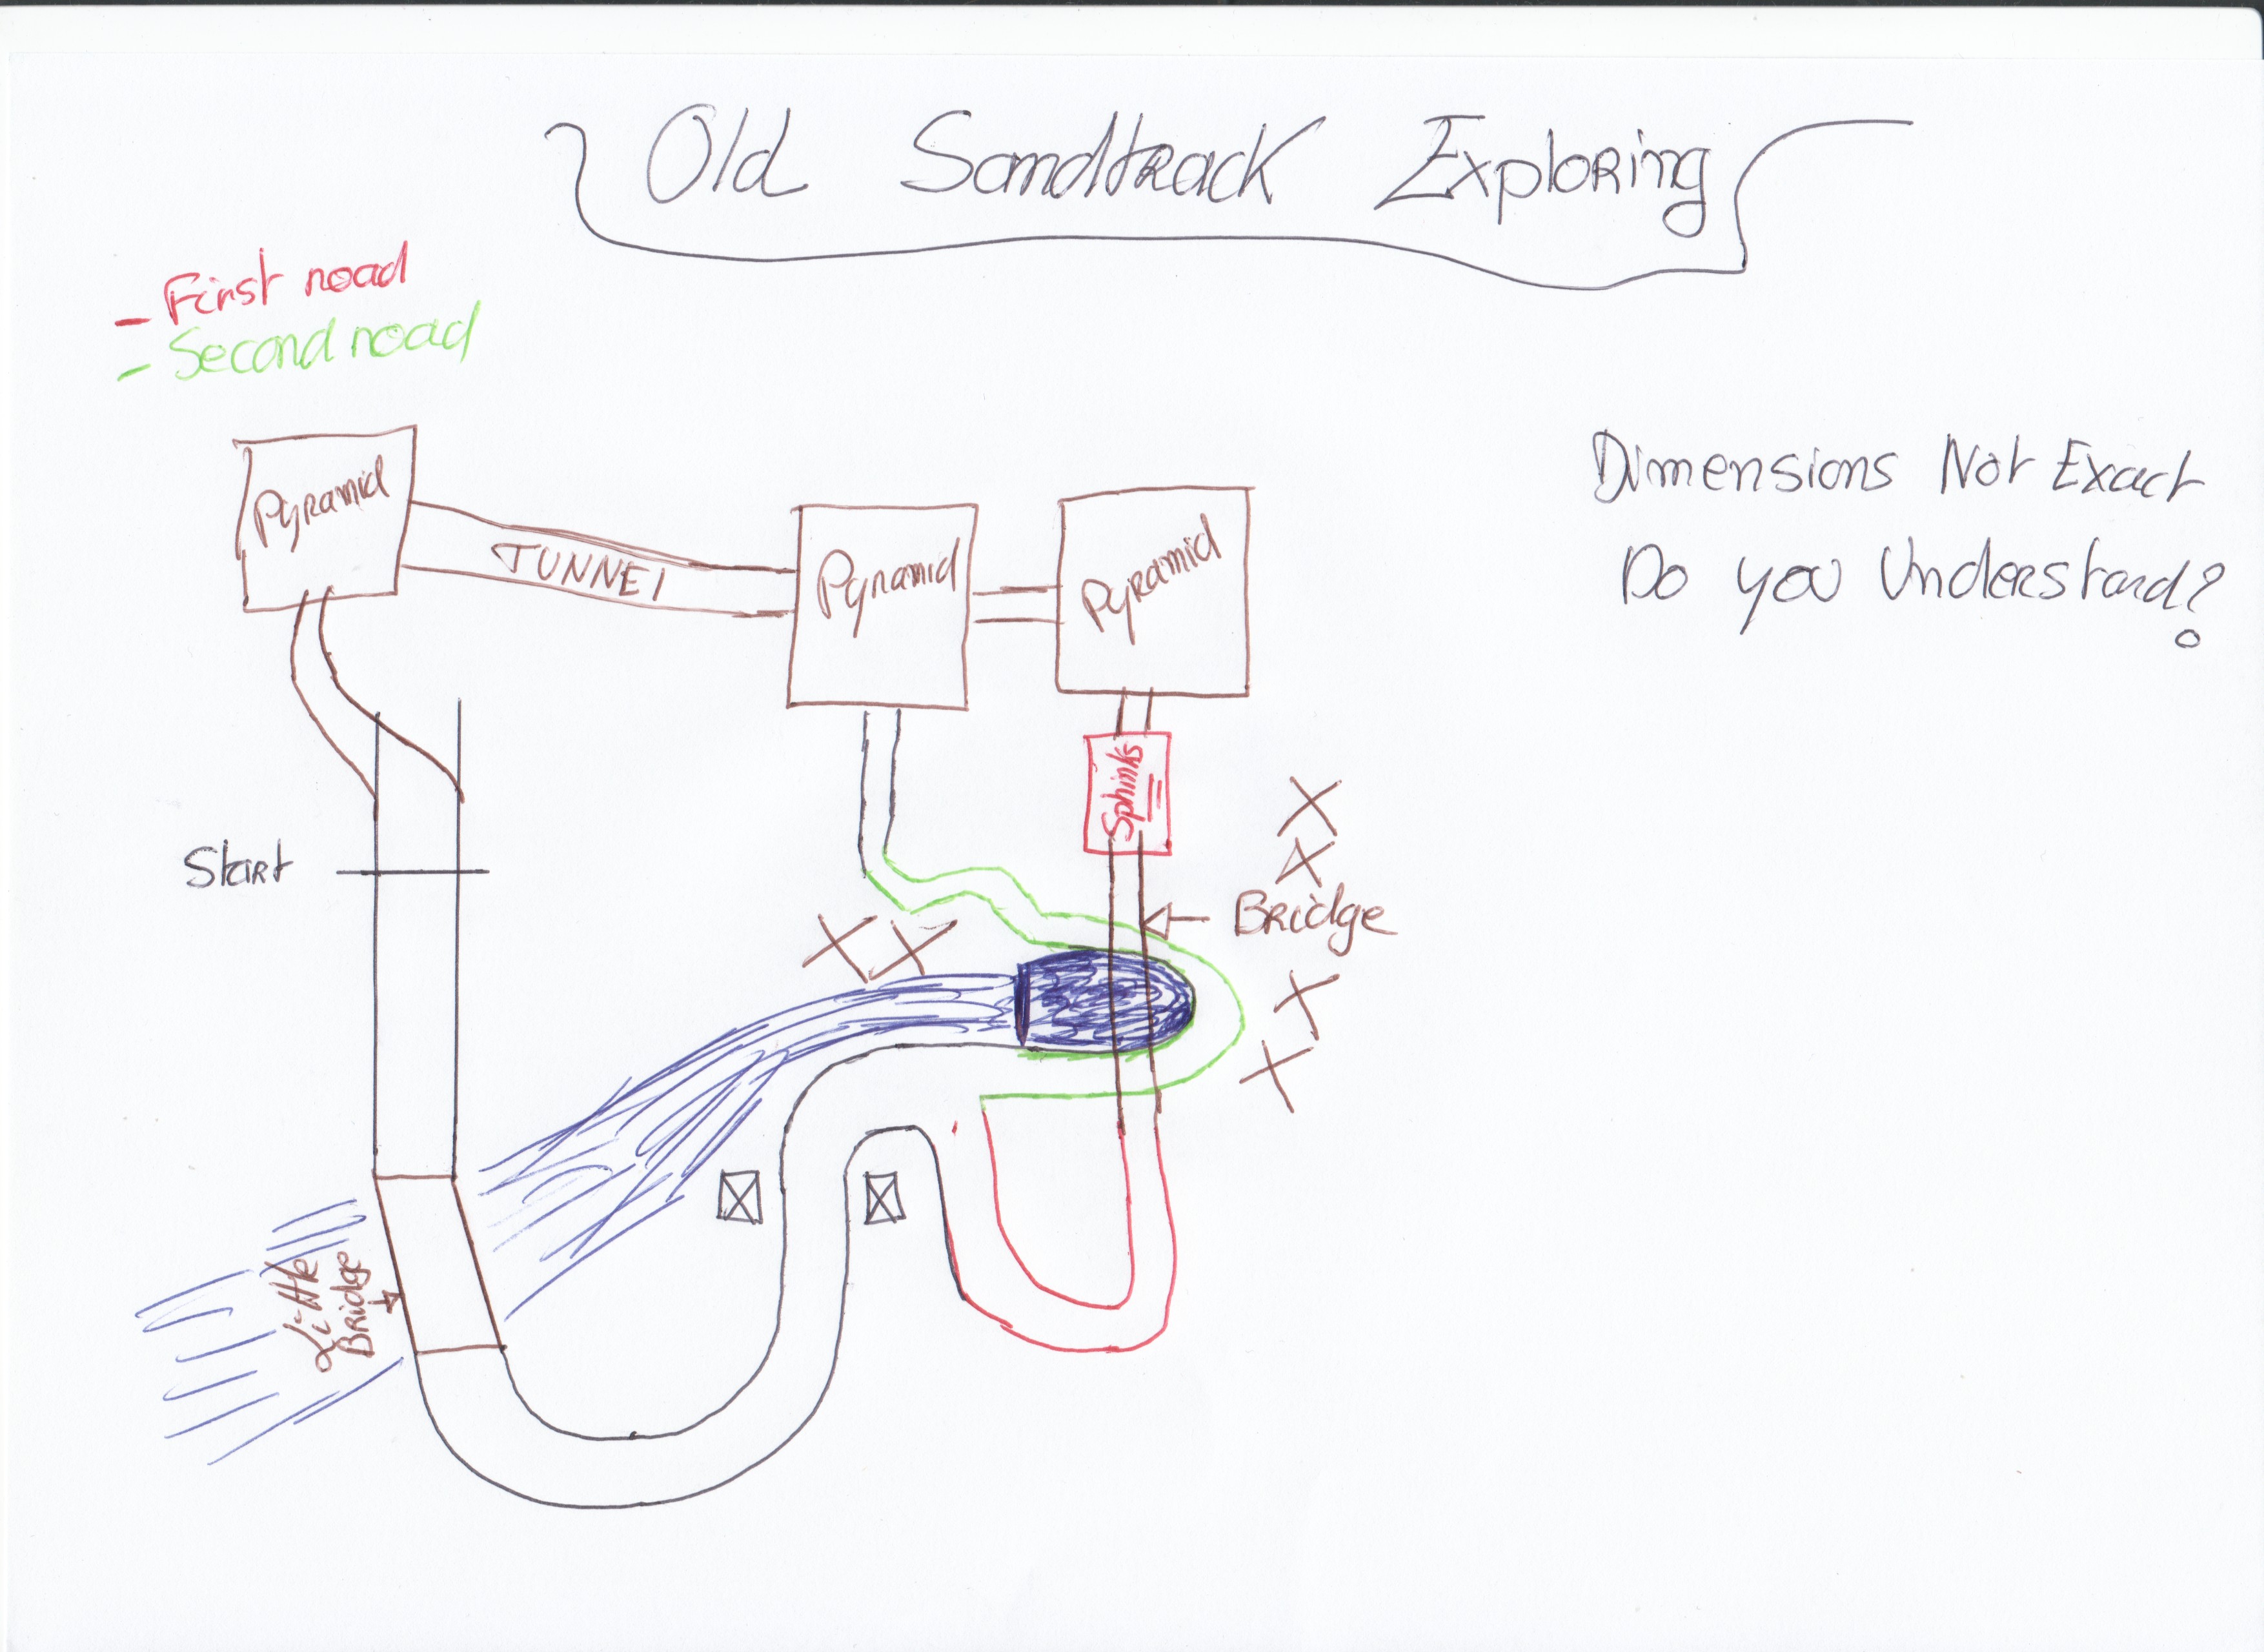 Old Sandtrack Exploring
- First road
- Second road
Dimensions Not Exact
Do you Understand?
Pyramid
TUNNEl
Pyramid
Pyramid
Sphinks
Start
Bridge
Little
Bridge